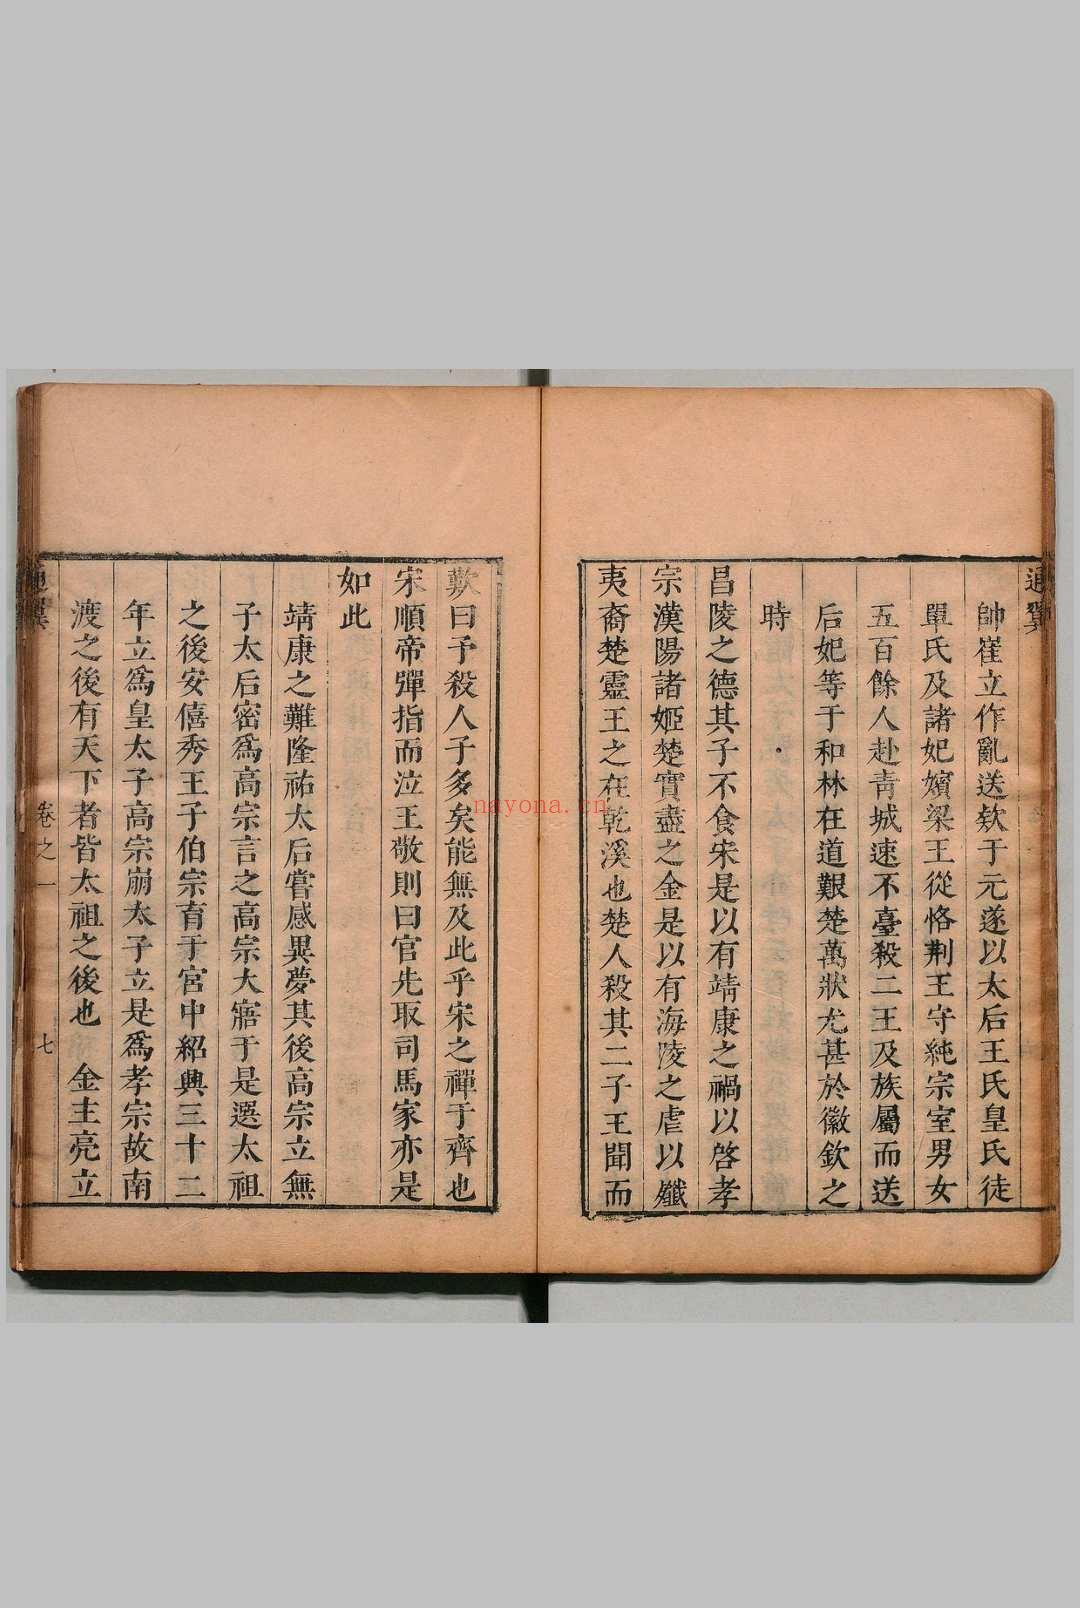 通翼
帥崔立作亂送欵于元遂以太后王氏皇氏徒
單氏及諸妃嬪梁王從恪荆王守純宗室男女
五百餘人赴青城速不臺殺二王及族屬而送
后妃等于和林在道艱楚萬狀尤甚於徽欽之
時
昌陵之德其子不食宋是以有靖康之禍以啓孝
宗漢陽諸姬楚實盡之金是以有海陵之虐以殲
夷裔楚靈王之在乾溪也楚人殺其二子王聞而
歎曰予殺人子多矣能無及此乎宋之禪于齊也
宋順帝彈指而泣王敬則曰官先取司馬家亦是
如此
靖康之難隆祐太后嘗感異夢其後高宗立無
子太后密爲高宗言之高宗大寤于是選太祖
之後安僖秀王子伯宗育于宮中紹興三十二
年立爲皇太子高宗崩太子立是爲孝宗故南
渡之後有天下者皆太祖之後也 金主亮立
通翼 卷之一 七
nayona.cn